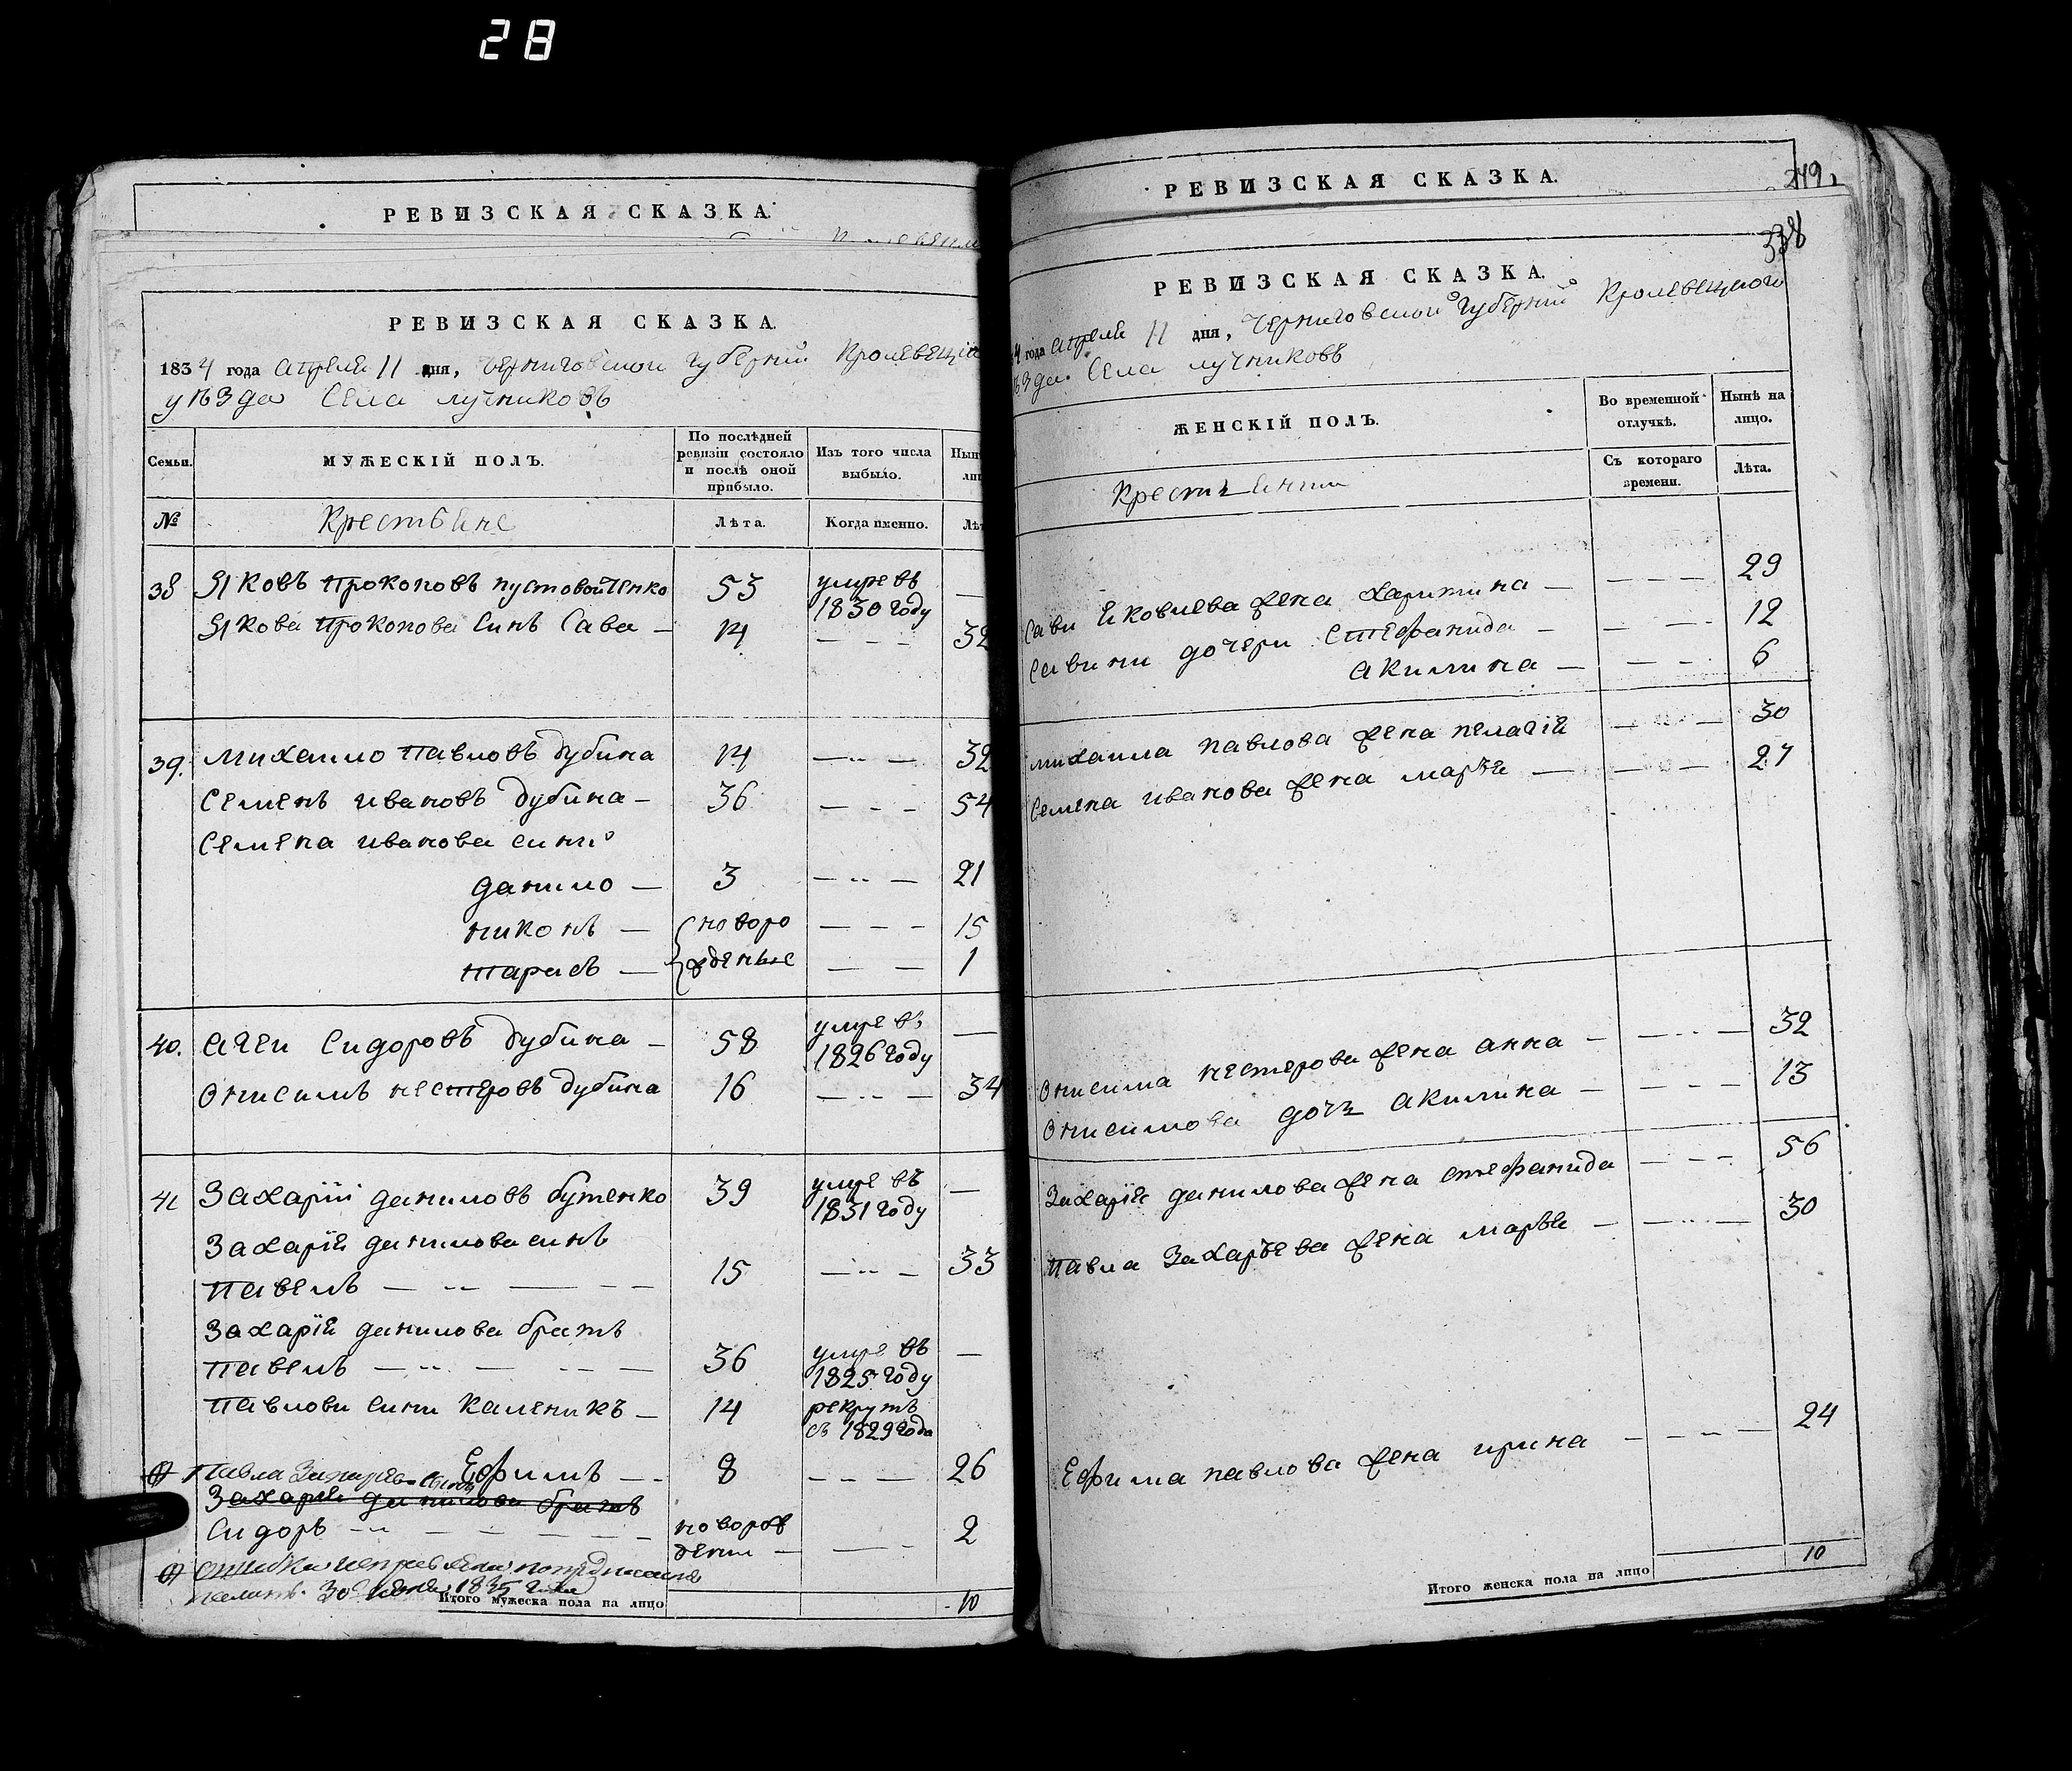 28
РЕВИЗСКАЯ СКАЗКА.
РЕВИЗСКАЯ СКАЗКА.
1834 года Апреля 11 дня, Черниговской губерний Кролевец
уѣзда Села лучниковъ
Семьи.
МУЖЕСКІЙ ПОЛЪ.
По послѣдней ревизіи состояло и послѣ оной прибыло.
Изъ того числа выбыло.
№
Крестьяне
Лѣта.
Когда именно.
38 Яковъ Прокоповъ пустовойченко 53 умре въ 1830 году —
Якова Прокопова Синъ Сава — 14 — - - 32
39. Михаило Павловъ дубина 14 — -- — 32
Семенъ ивановъ дубина — 36 — - - 54
Семена иванова сини
данило — 3 — -- — 21
никонъ — новоро — - - 15
тарасъ — жденые — — 1
40. Сидоровъ дубина — 58 умре въ 1826 году —
Онисимъ нестеровъ дубина 16 — -- — 34
41 Захарій даниловъ бутенко 39 умре въ 1831 году —
Захарія данилова синъ
Павелъ — -- — -- 15 — -- - 33
Захарія данилова братъ
Павелъ — -- — -- — 36 умре въ 1825 году —
Павлови сини Каленикъ — 14 рекрутъ съ 1829 года
Ефимъ — - 8 — - - 26
Павла Захарьева Синъ
Захарія данилова братъ
Сидоръ - -- — — — — - новорож дени — — - - 2
30 июня 1835 года
Итого мужеска пола на лицо 10
РЕВИЗСКАЯ СКАЗКА.
249
338
РЕВИЗСКАЯ СКАЗКА.
4 года Апреля 11 дня, Черниговской Губерний Кролевецкого
ѣзда Села лучниковъ
ЖЕНСКІЙ ПОЛЪ.
Во временной отлучкѣ.
Нынѣ на лицо.
Съ котораго времени.
Лѣта.
Сави Яковлева жена харитина — — — — 29
Савини дочери Стефанида — — — - 12
акилина — — — - 6
михаила павлова жена пелагія — -- — 30
Семена иванова жена марья — — — 27
Онисима нестерова жена анна — — -- — 32
Онисимова дочъ акилина — — - - — 13
Захарія данилова жена стефанида — - - - 56
Павла Захарьева жена марья — — -- — 30
Ефима павлова жена ирина — — -- — 24
Итого женска пола на лицо 10